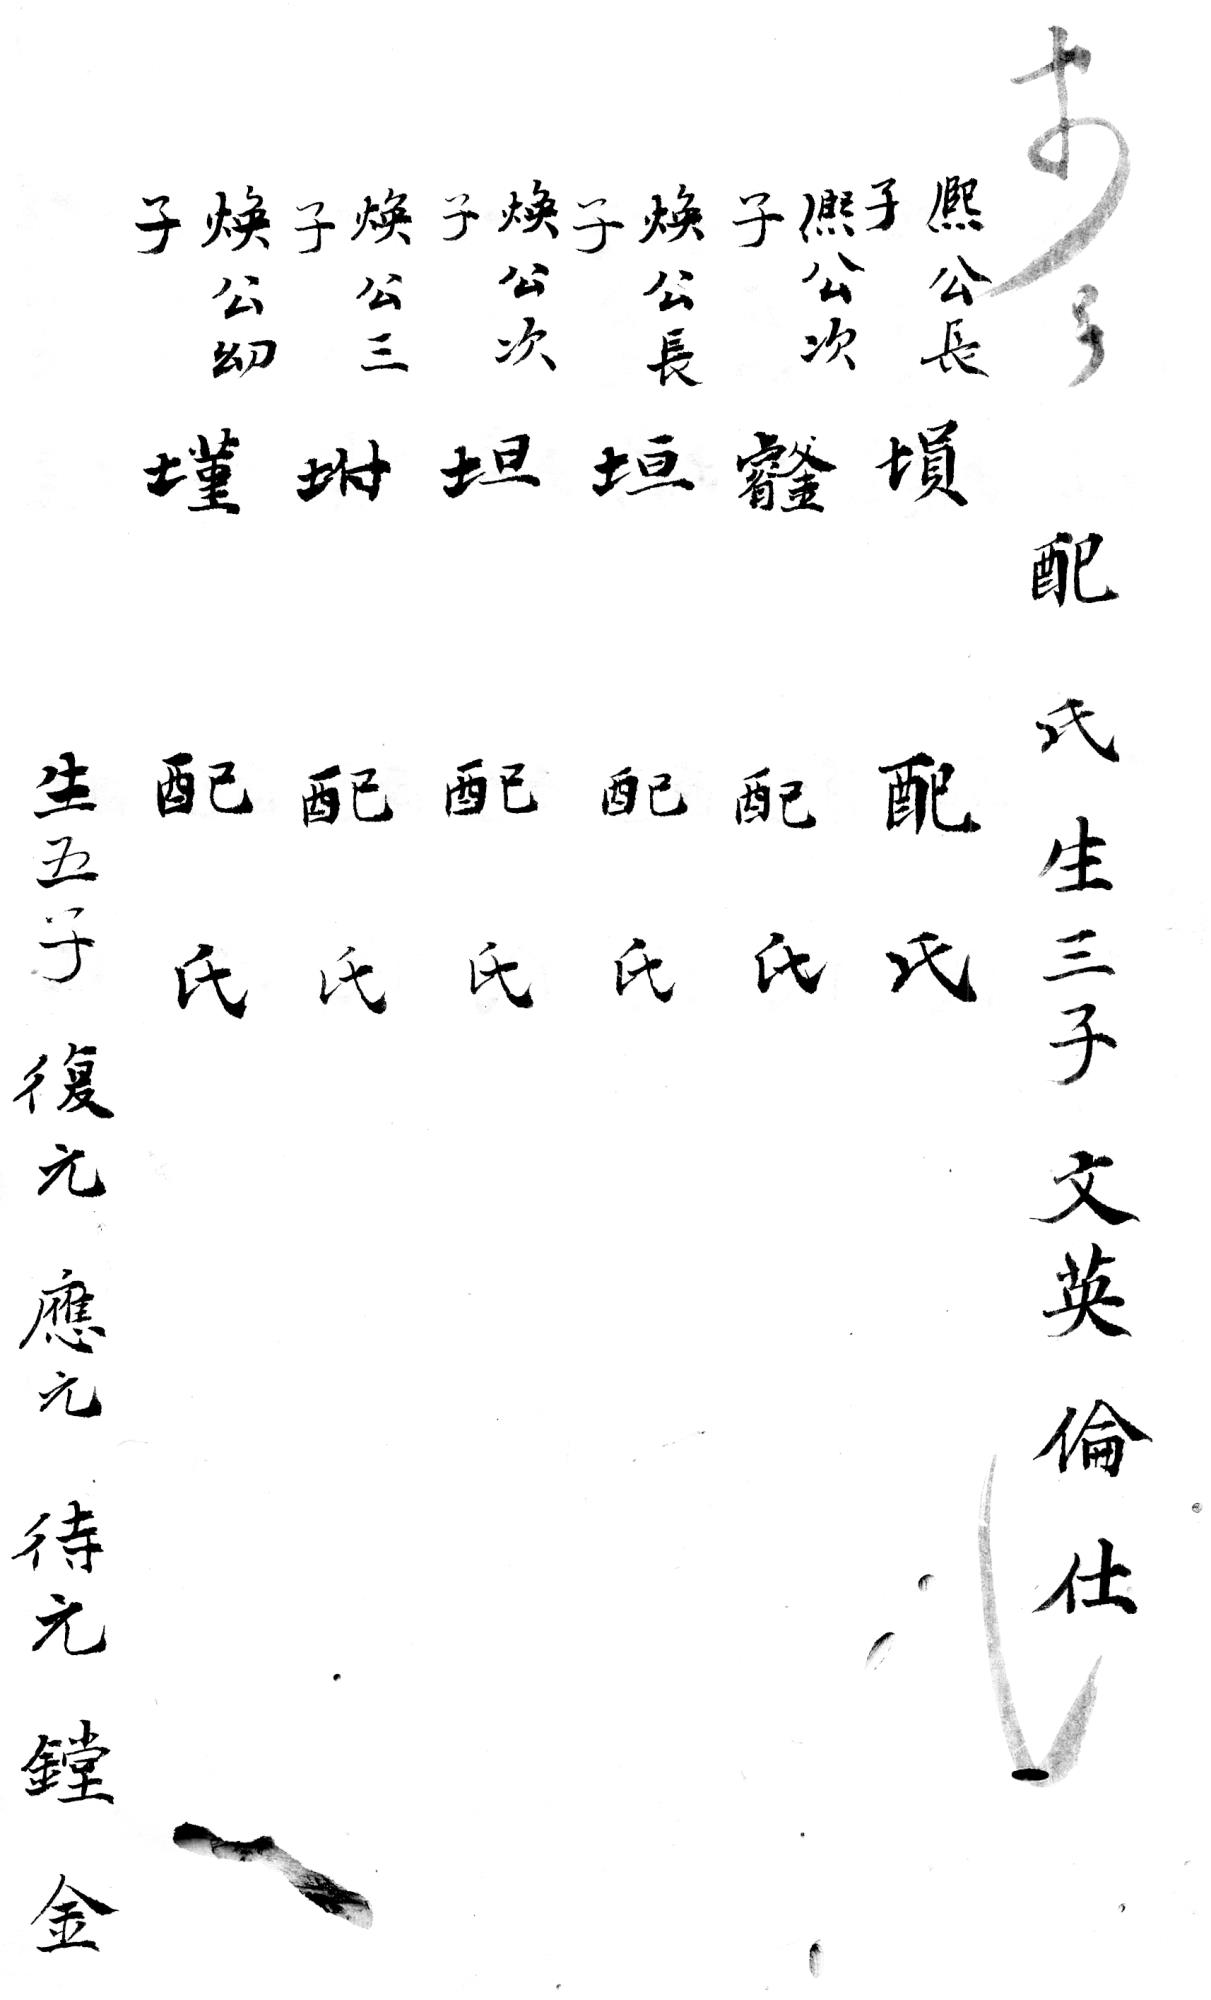 配氏生三子 文英 倫 仕
熈公長子 塤 配氏
熈公次子 配氏
煥公長子 垣 配氏
煥公次子 坦 配氏
煥公三子 坿 配氏
煥公幼子 墐 配氏
生五子 復元 應元 待元 鏜 金